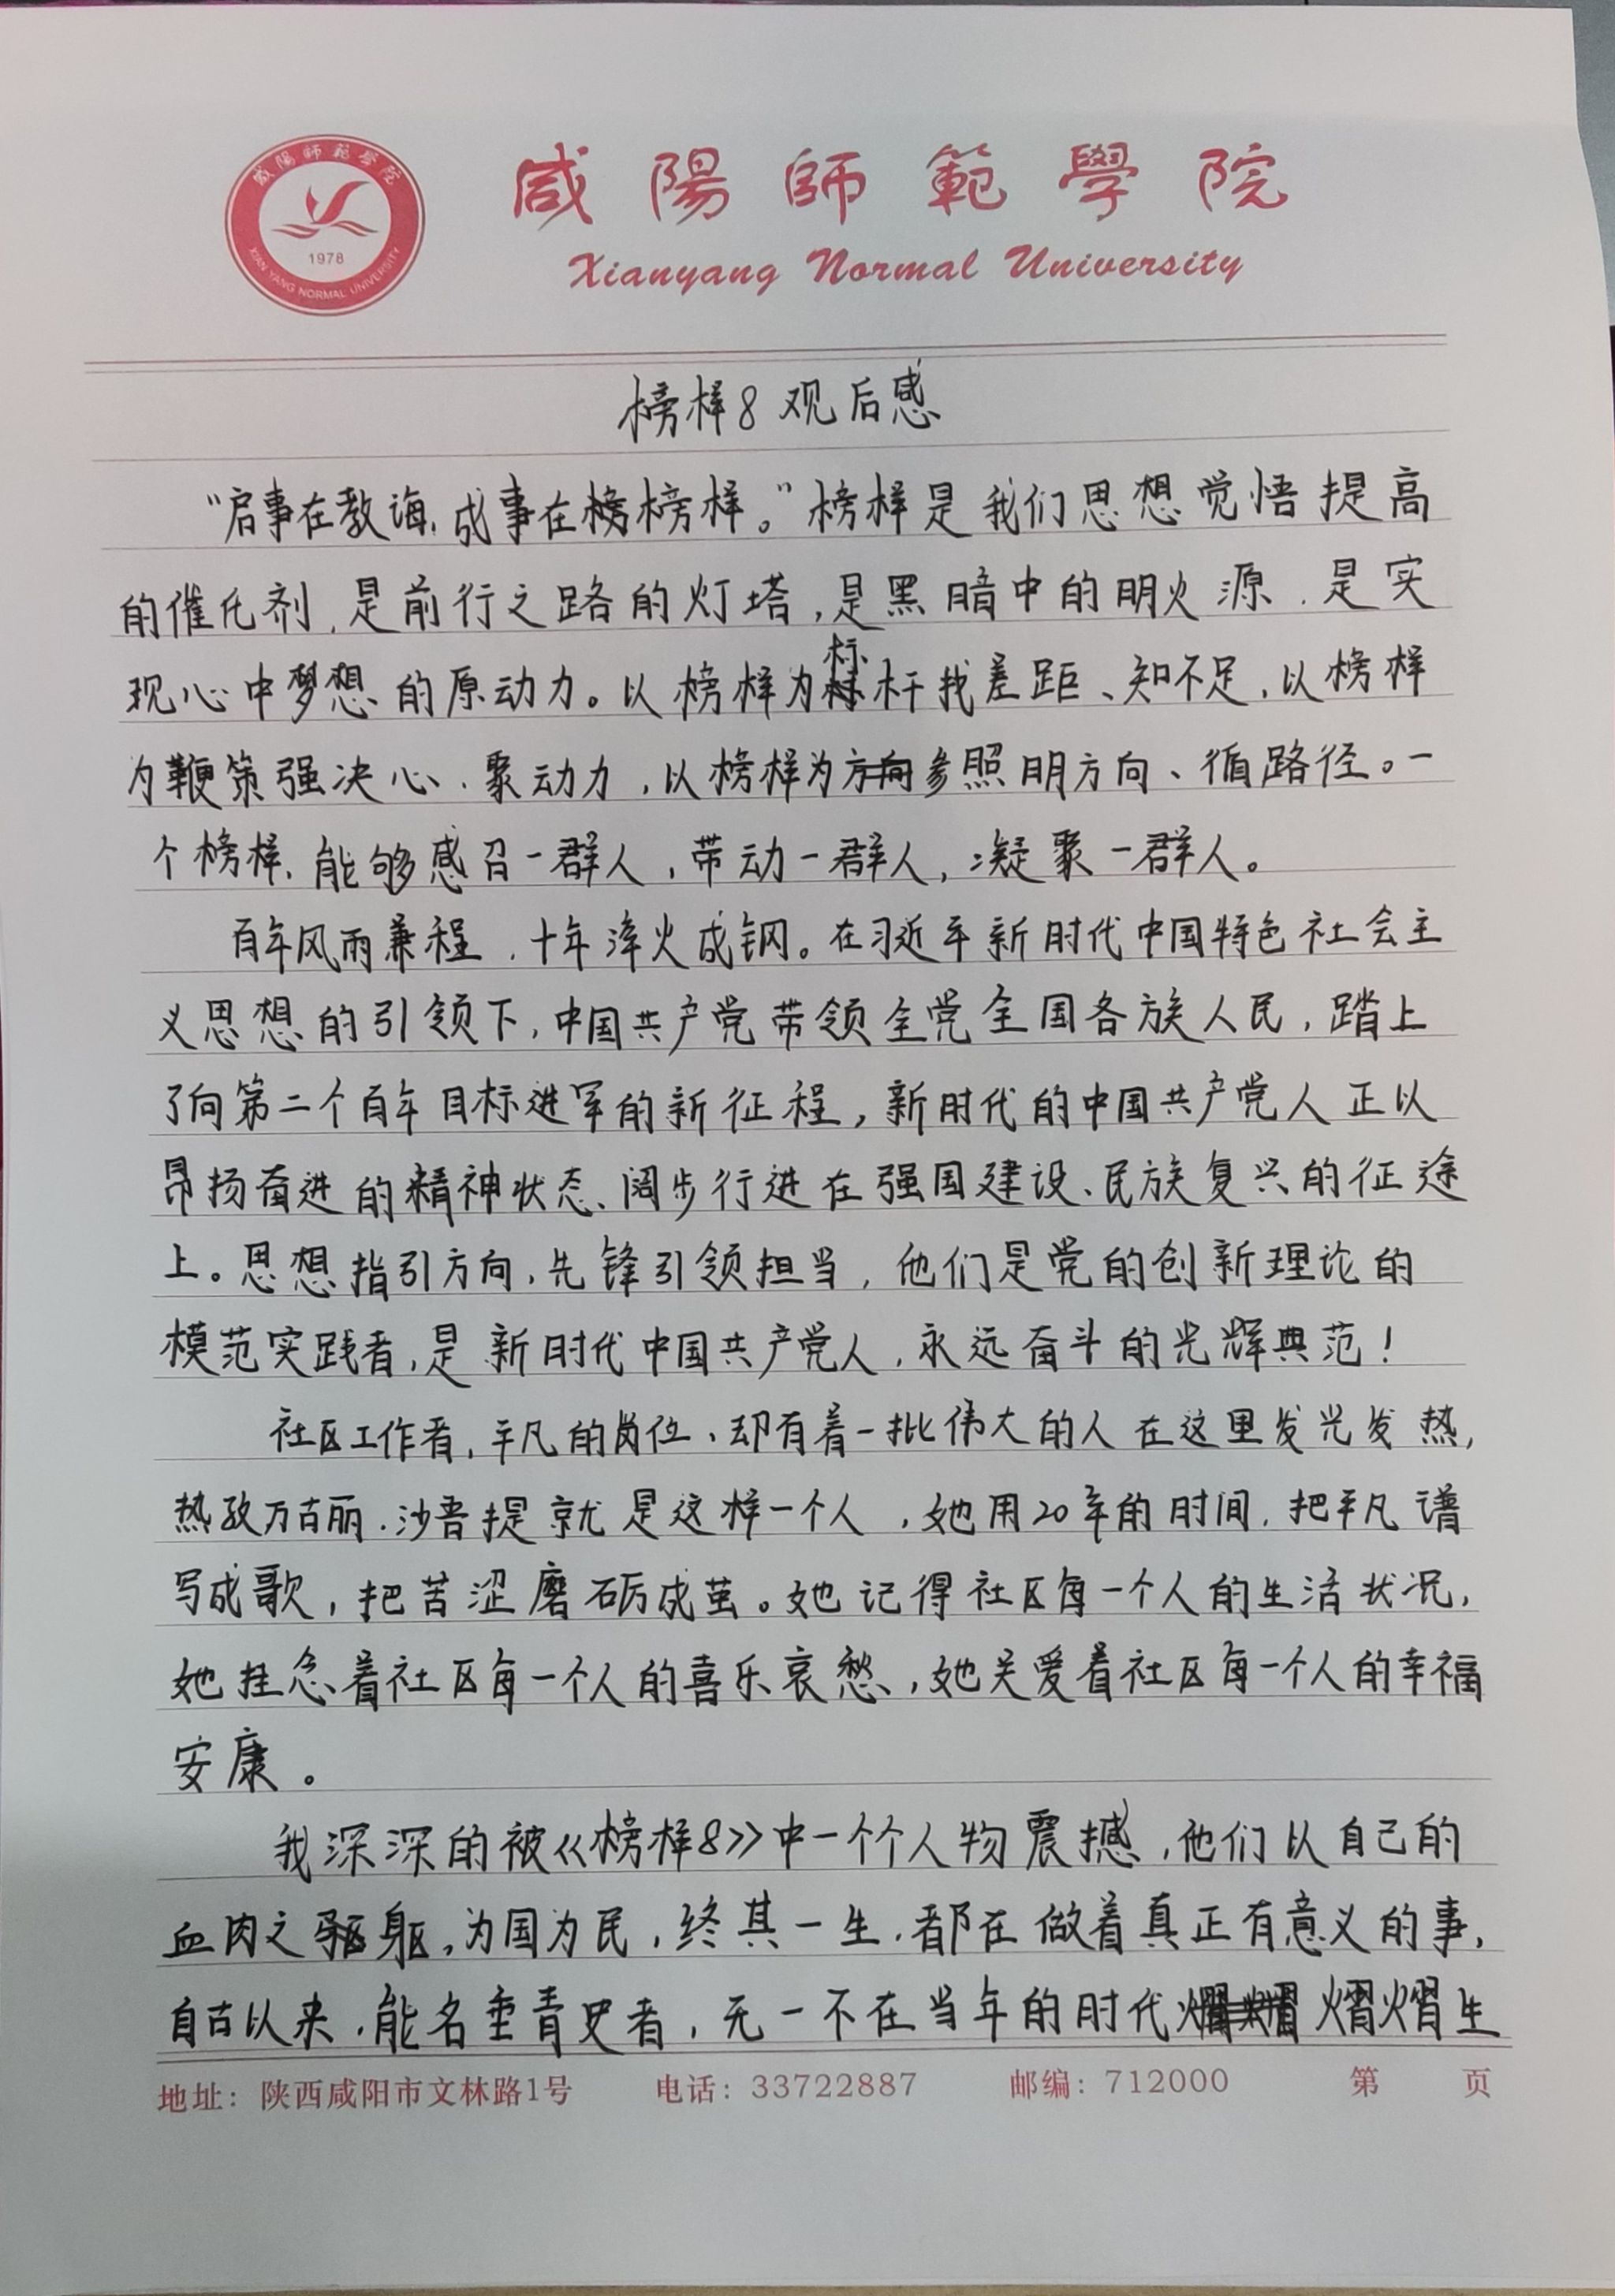 咸陽師範學院
XIAN YANG NORMAL UNIVERSITY
1978
咸陽師範學院
Xianyang Normal University
榜样8 观后感
“启事在教诲,成事在榜榜样。”榜样是我们思想觉悟提高
的催化剂,是前行之路的灯塔,是黑暗中的明火源,是实
现心中梦想的原动力。以榜样为标杆找差距、知不足,以榜样
为鞭策强决心、聚动力,以榜样为方向参照明方向、循路径。一
个榜样,能够感召一群人,带动一群人,凝聚一群人。
百年风雨兼程,十年淬火成钢。在习近平新时代中国特色社会主
义思想的引领下,中国共产党带领全党全国各族人民,踏上
了向第二个百年目标进军的新征程,新时代的中国共产党人正以
昂扬奋进的精神状态、阔步行进在强国建设、民族复兴的征途
上。思想指引方向,先锋引领担当,他们是党的创新理论的
模范实践者,是新时代中国共产党人,永远奋斗的光辉典范!
社区工作者,平凡的岗位,却有着一批伟大的人在这里发光发热,
热孜万古丽·沙吾提就是这样一个人,她用20年的时间,把平凡谱
写成歌,把苦涩磨砺成茧。她记得社区每一个人的生活状况,
她挂念着社区每一个人的喜乐哀愁,她关爱着社区每一个人的幸福
安康。
我深深的被《榜样8》中一个个人物震撼,他们以自己的
血肉之驱躯,为国为民,终其一生,都在做着真正有意义的事,
自古以来,能名垂青史者,无一不在当年的时代熠熠生
地址:陕西咸阳市文林路1号 电话:33722887 邮编:712000 第 页